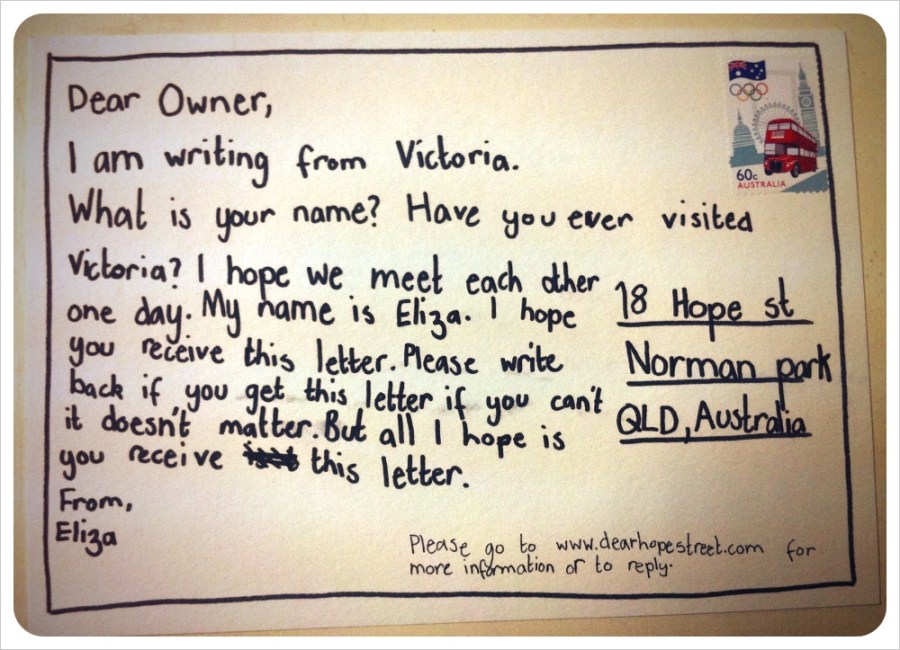 Dear Owner,
I am writing from Victoria.
What is your name? Have you ever visited
Victoria? I hope we meet each other
one day. My name is Eliza. I hope
you receive this letter. Please write
back if you get this letter if you can't
it doesn't matter. But all I hope is
you receive this letter.
From,
Eliza
60c
AUSTRALIA
18 Hope st
Norman park
QLD, Australia
Please go to www.dearhopestreet.com for
more information or to reply.